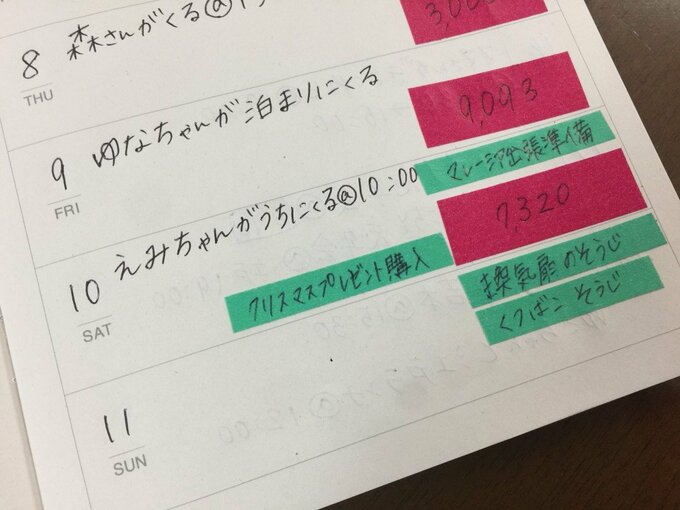 8
THU
森さんがくる@1
9
FRI
ゆなちゃんが泊まりにくる
9,093
マレーシア出張準備
10
SAT
えみちゃんがうちにくる@10:00
7,320
クリスマスプレゼント購入
換気扇のそうじ
くつばこ そうじ
11
SUN